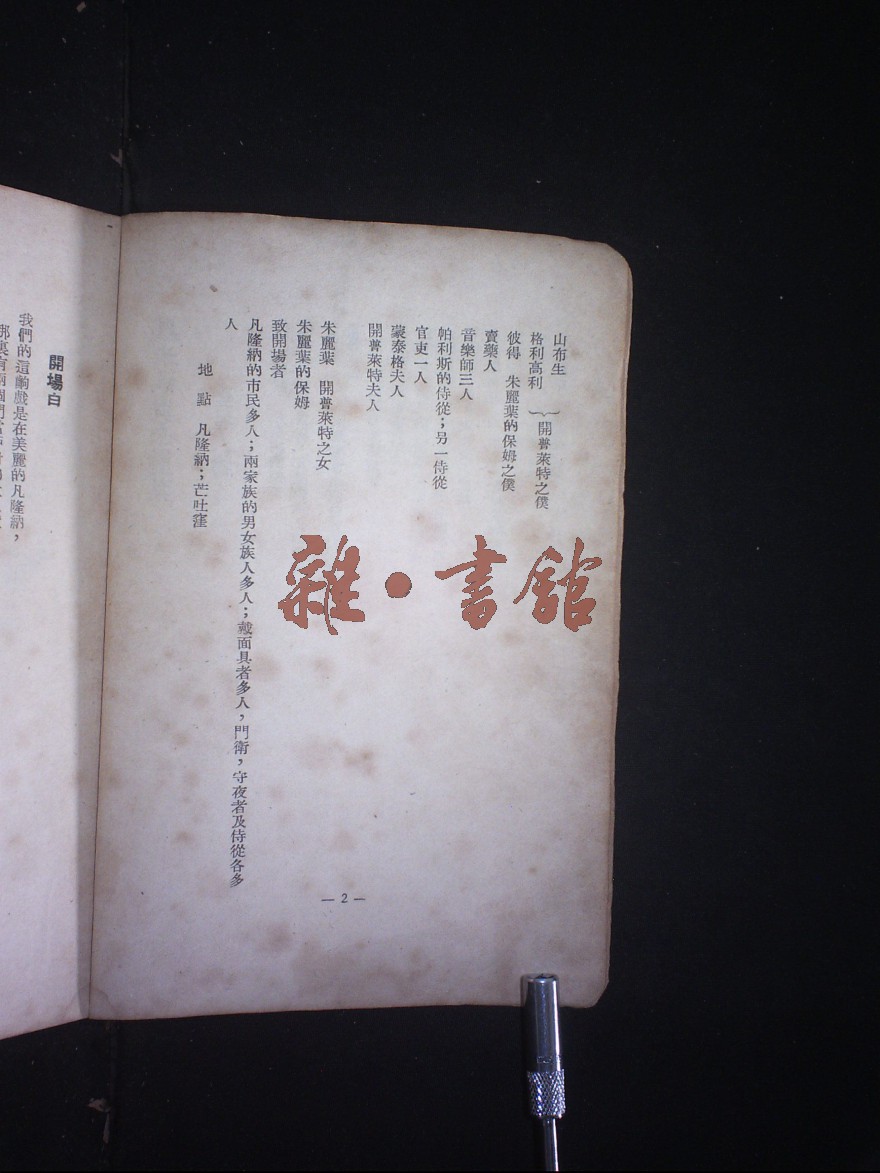 山布生
格利高利 ｝開普萊特之僕
彼得　朱麗葉的保姆之僕
賣藥人
音樂師三人
帕利斯的侍從；另一侍從
官吏一人
蒙泰格夫人
開普萊特夫人
朱麗葉　開普萊特之女
朱麗葉的保姆
致開場者
凡隆納的市民多人；兩家族的男女族人多人；戴面具者多人，門衛，守夜者及侍從各多
人
地　點　凡隆納；芒吐窪
— 2 —
開場白
我們的這齣戲是在美麗的凡隆納，
雜·書館